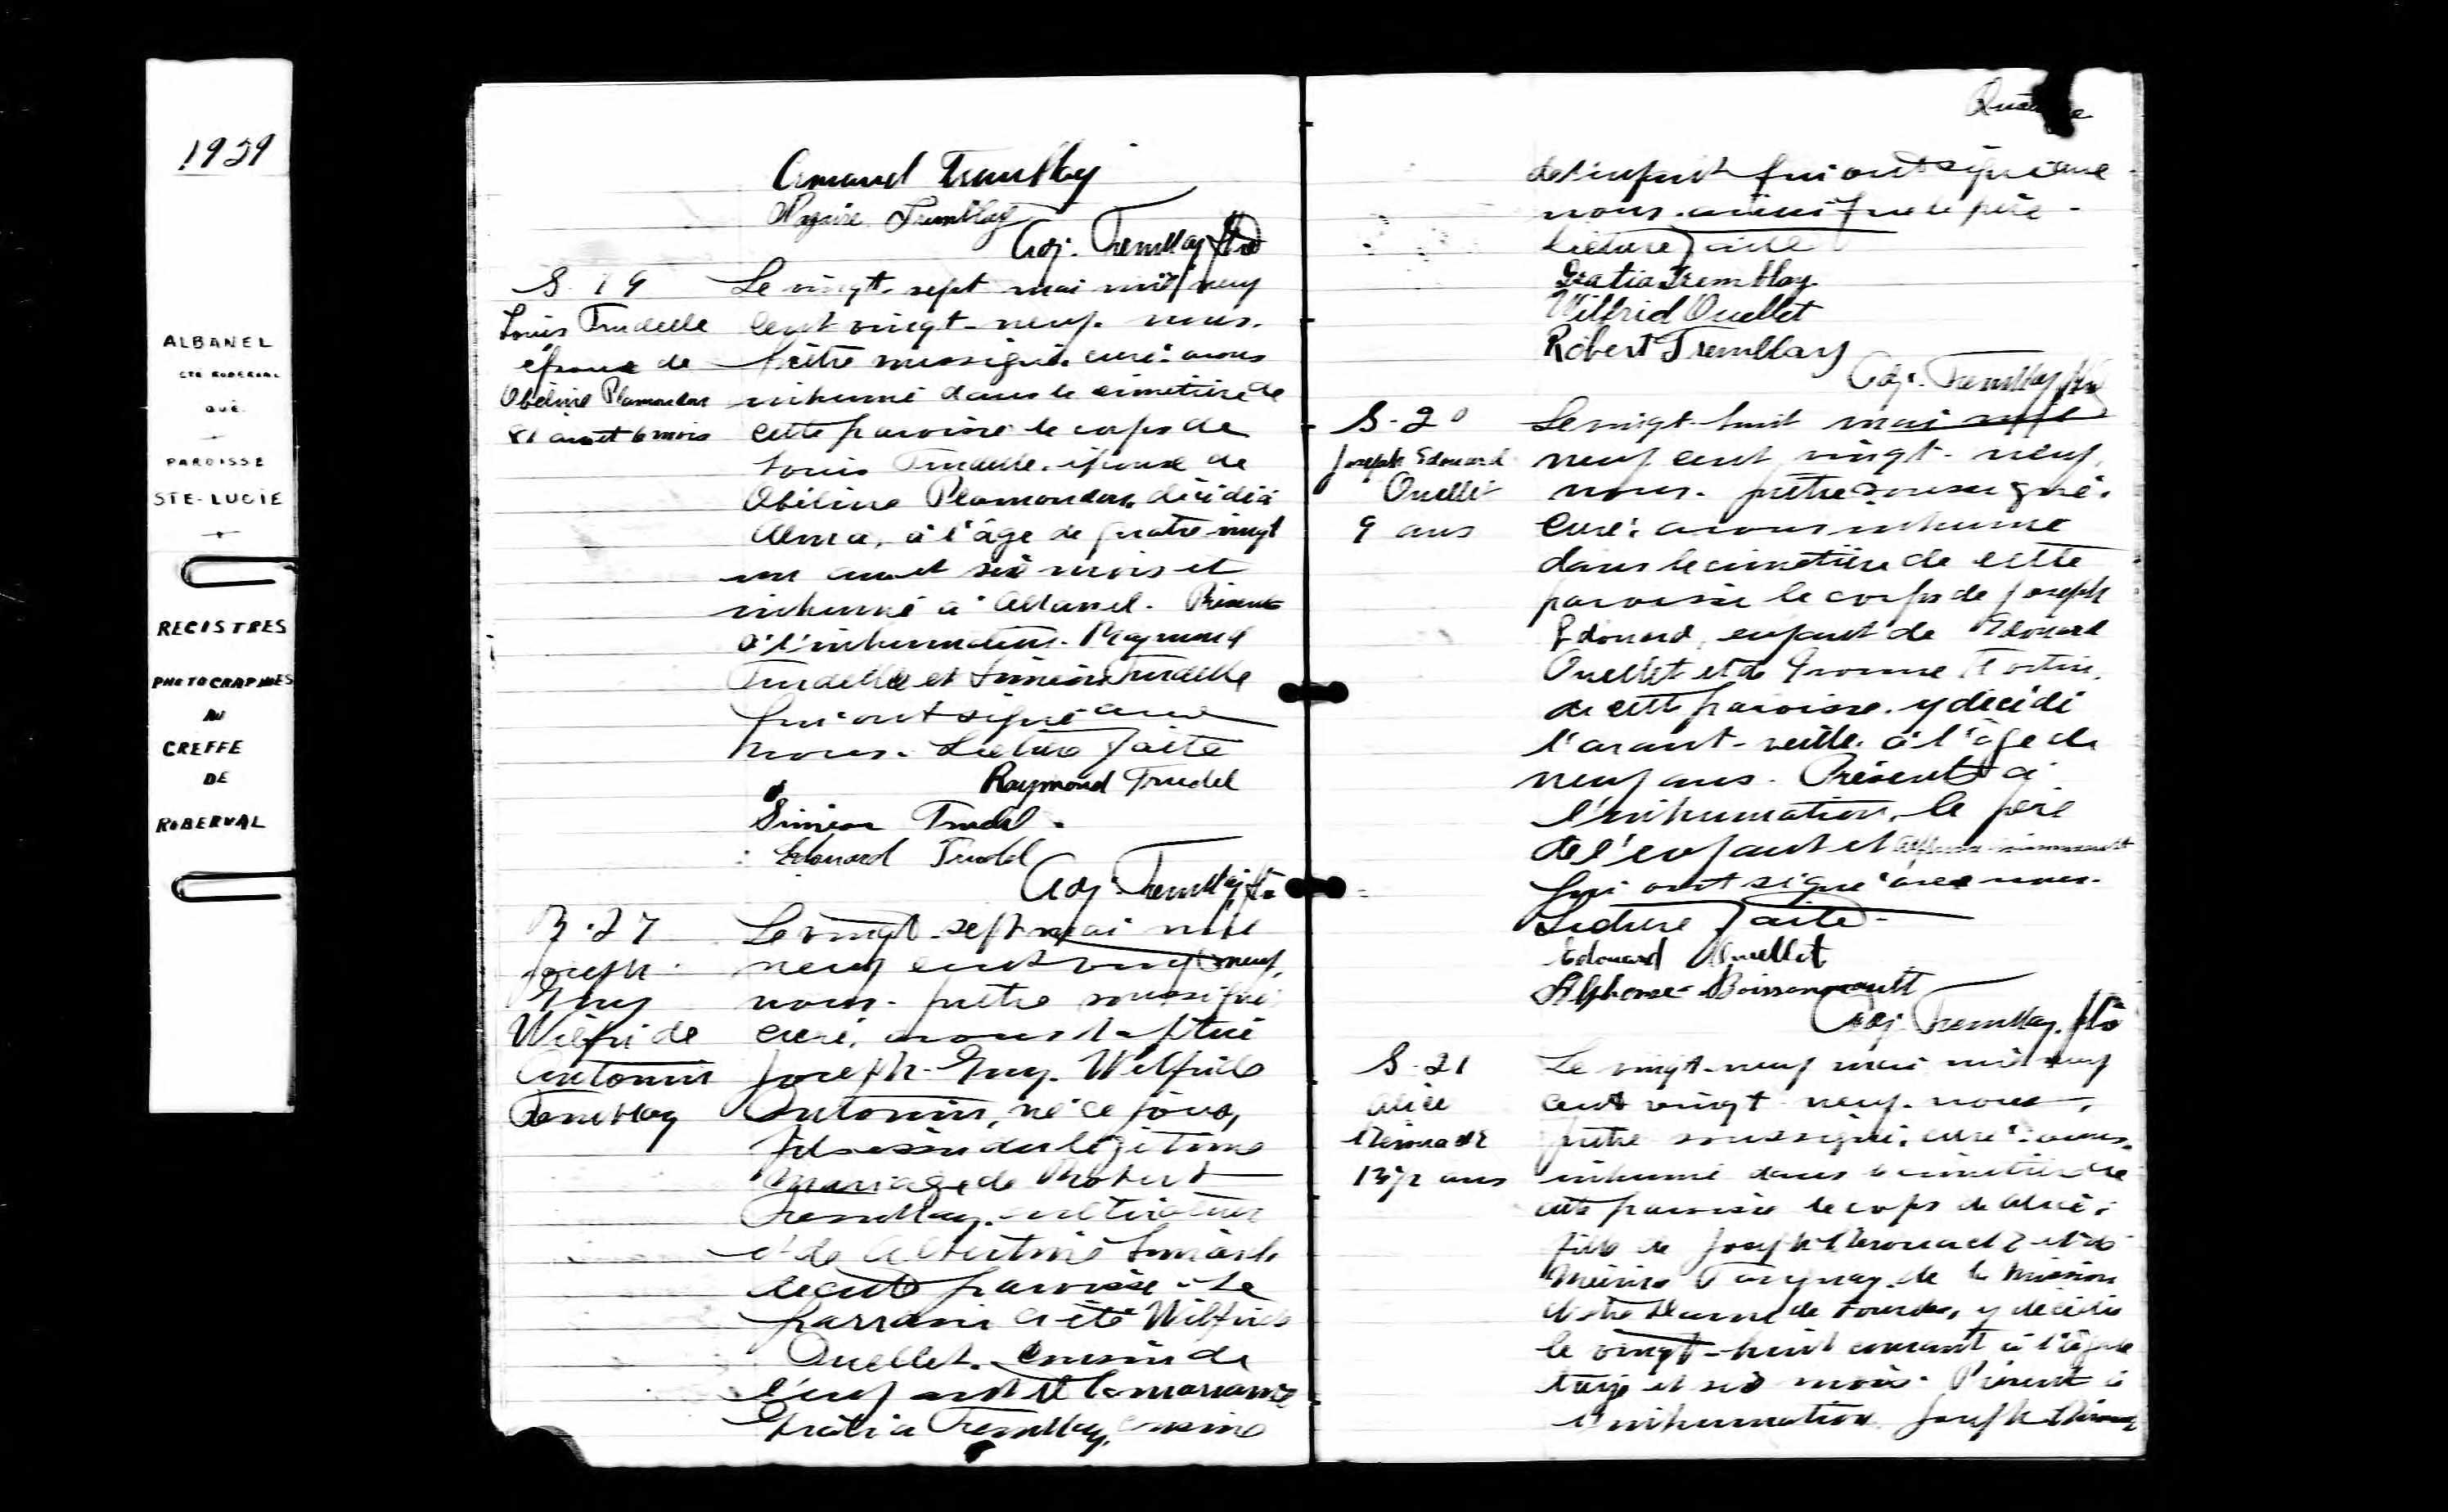 1929
ALBANEL
CTE ROBERVAL
QUÉ.
PAROISSE
STE-LUCIE
REGISTRES
PHOTOGRAPHIÉS
AU
GREFFE
DE
ROBERVAL
Armand Tremblay
Tremblay
Adj. Tremblay Ptre
S. 19
Louis Trudelle
époux de
Obéline Plamondon
81 ans et 6 mois
Le vingt-sept mai mil neuf
cent vingt-neuf. nous.
prêtre soussigné. curé. avons
inhumé dans le cimetière de
cette paroisse le corps de
Louis Trudelle. époux de
Obéline Plamondon, décédé à
Alma, à l'âge de quatre vingt
un ans et six mois et
inhumé à Albanel. Présents
à l'inhumation. Raymond
Trudelle et Siméon Trudelle
qui ont signé avec
nous. Lecture faite
Raymond Trudel
Siméon Trudel.
Edouard Trudel
Adj. Tremblay Ptre
B. 27
Joseph
Guy
Wilfride
Antonin
Tremblay
Le vingt-sept mai mil
neuf cent vingt neuf,
nous. prêtre soussigné
curé, avons baptisé
Joseph-Guy. Wilfrid
Antonin, né ce jour,
fils issu du légitime
mariage de Robert
Tremblay. cultivateur
et de Albertine Simard
de cette paroisse. Le
parrain a été Wilfrid
Ouellet. cousin de
l'enfant et la marraine
Gratia Tremblay, cousine
de l'enfant qui ont signé avec
nous. ainsi que le père.
Lecture faite
Gratia Tremblay.
Wilfrid Ouellet
Robert Tremblay
Adj. Tremblay Ptre
S-20
Joseph Edouard
Ouellet
9 ans
Le vingt-huit mai mil
neuf cent vingt-neuf,
nous. prêtre soussigné.
curé. avons inhumé
dans le cimetière de cette
paroisse le corps de Joseph
Edouard, enfant de Edouard
Ouellet et de Yvonne Fortin.
de cette paroisse. y décédé
l'avant-veille. à l'âge de
neuf ans. Présents à
l'inhumation, le père
de l'enfant et Alphonse Boissonneault
qui ont signé avec nous.
Lecture faite-
Edouard Ouellet
Alphonse Boissonneault
Adj. Tremblay. Ptre
S-21
Alice
13½ ans
Le vingt-neuf mai mil neuf
cent vingt neuf. nous,
prêtre soussigné. curé. avons.
inhumé dans le cimetière de
cette paroisse le corps de Alice.
fille de Joseph et de
de la mission
Notre Dame de Lourdes, y décédée
le vingt-huit courant à l'âge de
treize et six mois. Présent à
l'inhumation Joseph